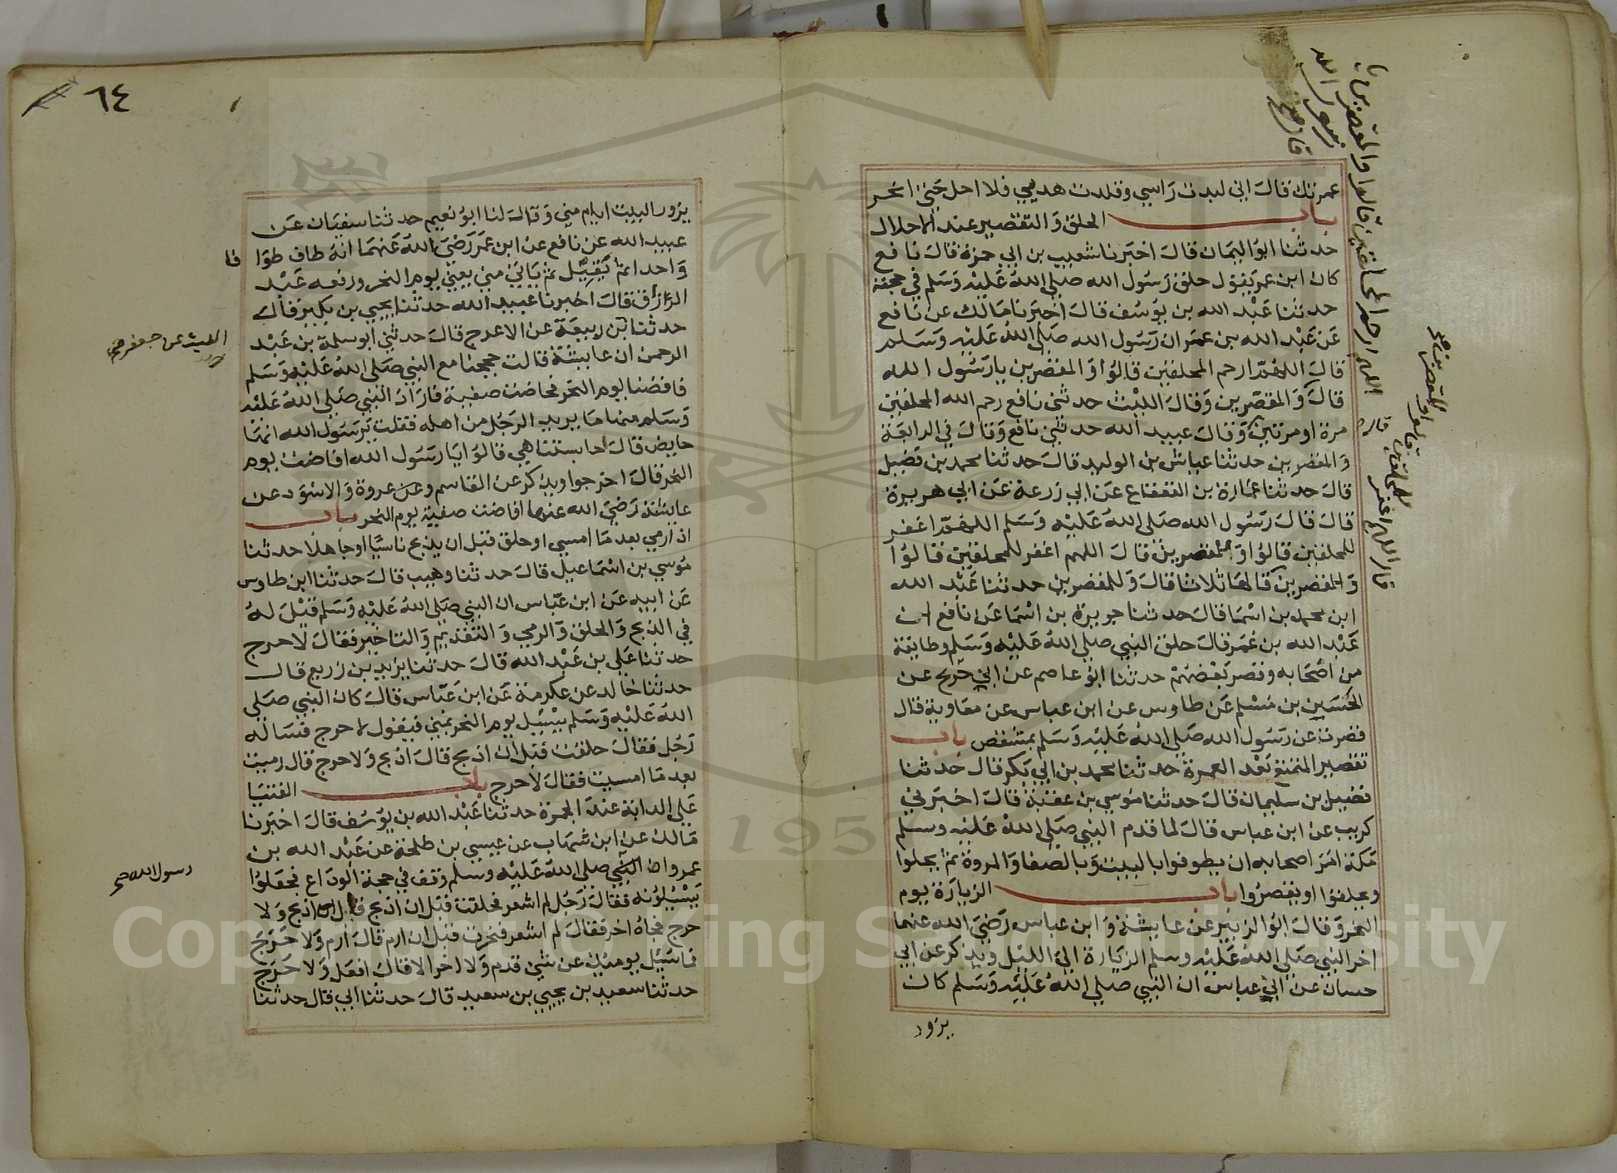 عمرتك قال اني لبدت راسي وقلدت هديي فلا احل حتى انحر
باب الحلق والتقصير عند الاحلال
حدثنا ابو اليمان قال اخبرنا شعيب بن ابي حمزة قال نافع
كان ابن عمر يقول حلق رسول الله صلى الله عليه وسلم في حجته
حدثنا عبد الله بن يوسف قال اخبرنا مالك عن نافع
عن عبد الله بن عمر ان رسول الله صلى الله عليه وسلم
قال اللهم ارحم المحلقين قالوا والمقصرين يا رسول الله
قال والمقصرين وقال الليث حدثني نافع رحم الله المحلقين
مرة او مرتين وقال عبيد الله حدثني نافع وقال في الرابعة
والمقصرين حدثنا عياش بن الوليد قال حدثنا محمد بن فضيل
قال حدثنا عمارة بن القعقاع عن ابي زرعة عن ابي هريرة
قال قال رسول الله صلى الله عليه وسلم اللهم اغفر
للمحلقين قالوا وللمقصرين قال اللهم اغفر للمحلقين قالوا
وللمقصرين قالها ثلاثا قال وللمقصرين حدثنا عبد الله
ابن محمد بن اسما قال حدثنا جويرة بن اسما عن نافع ان
عبد الله بن عمر قال حلق النبي صلى الله عليه وسلم وطايفة
من اصحابه وقصر بعضهم حدثنا ابو عاصم عن ابي جريج عن
الحسين بن مسلم عن طاوس عن ابن عباس عن معاوية قال
قصرت عن رسول الله صلى الله عليه وسلم بمشقص باب
تقصير المتمتع بعد العمرة حدثنا محمد بن ابي بكر قال حدثنا
فضيل بن سليمان قال حدثنا موسي بن عقبة قال اخبرني
كريب عن ابن عباس قال لما قدم النبي صلى الله عليه وسلم
مكة امر اصحابه ان يطوفوا بالبيت وبالصفا والمروة ثم يحلوا
ويحلقوا او يقصروا باب الزيارة يوم
النحر وقال ابو الزبير عن عايشة وابن عباس رضي الله عنهما
اخر النبي صلى الله عليه وسلم الزيارة الى الليل ويذكر عن ابي
حسان عن ابي عباس ان النبي صلى الله عليه وسلم كان
يزور
اللهم ارحم المحلقين قالوا والمقصرين يا
رسول الله
قال صح
قال اللهم اغفر
للمحلقين قالوا وللمقصرين صح
٦٤
يزور البيت ايام مني وقال لنا ابو نعيم حدثنا سفيان عن
عبيد الله عن نافع عن ابن عمر رضي الله عنهما انه طاف طوا فا
واحدا ثم يقيل ثم ياتي مني يعني يوم النحر ورفعه عبد
الرزاق قال اخبرنا عبيد الله حدثنا يحيي بن بكير قال
حدثنا بن ربيعة عن الاعرج قال حدثني ابو سلمة بن عبد
الرحمن ان عايشة قالت حججنا مع النبي صلى الله عليه وسلم
فافضنا يوم النحر فحاضت صفية فاراد النبي صلى الله عليه
وسلم منها ما يريد الرجل من اهله فقلت يرسول الله انها
حايض قال احابستنا هي قالوا يا رسول الله افاضت يوم
النحر قال اخرجوا ويذكر عن القاسم وعن عروة والاسود عن
عايشة رضي الله عنها افاضت صفية يوم النحر باب
اذا رمي بعد ما امسي او حلق قبل ان يذبح ناسيا او جاهلا حدثنا
موسي بن اسماعيل قال حدثنا وهيب قال حدثنا ابن طاوس
عن ابيه عن ابن عباس ان النبي صلى الله عليه وسلم قيل له
في الذبح والحلق والرمي والتقديم والتاخير فقال لا حرج
حدثنا علي بن عبد الله قال حدثنا يزيد بن زريع قال
حدثنا خالد عن عكرمة عن ابن عباس قال كان النبي صلى
الله عليه وسلم يسيل يوم النحر بمني فيقول لا حرج فساله
رجل فقال حلقت قبل ان اذبح قال اذبح ولا حرج قال رميت
بعد ما امسيت فقال لا حرج باب الفتيا
على الدابة عند الجمرة حدثنا عبد الله بن يوسف قال اخبرنا
مالك عن ابن شهاب عن عيسي بن طلحة عن عبد الله بن
عمرو ان النبي صلى الله عليه وسلم وقف في حجة الوداع فجعلوا
يسيلونه فقال رجل لم اشعر فحلقت قبل ان اذبح قال اذبح ولا
حرج فجاه اخر فقال لم اشعر فنحرت قبل ان ارم قال ارم ولا حرج
فما سيل يوميذ عن شي قدم ولا اخر الا قال افعل ولا حرج
حدثنا سعيد بن يحيي بن سعيد قال حدثنا ابي قال حدثنا
الليث عن جعفر صح
رسول الله صح
1957
Copyright © King Saud University